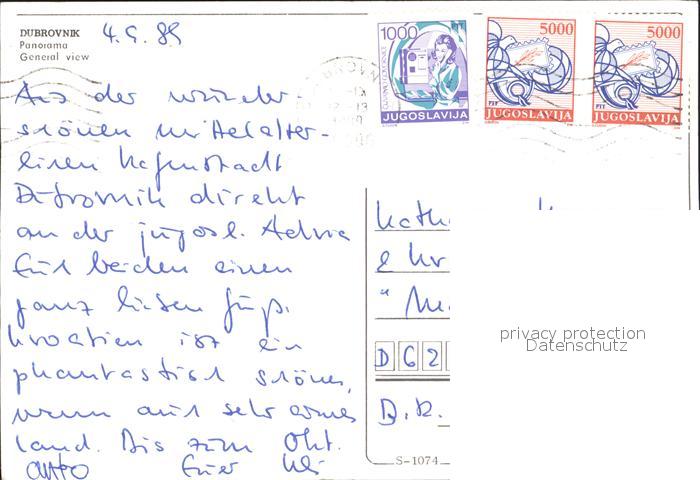 DUBROVNIK
Panorama
General view
4.9.89
1000
PTT
JUGOSLAVIJA
5000
PTT
JUGOSLAVIJA
5000
PTT
JUGOSLAVIJA
Aus der wunder-
schönen mittelalter-
lichen Hafenstadt
Dubrovnik direkt
an der jugosl. Adria
Euch beiden einen
ganz lieben Gruß.
Kroatien ist ein
phantastisch schönes,
wenn auch sehr armes
Land. Bis zum Okt.
Euer
Kath
& Kr
D 6 2
B.R.
S-1074
privacy protection
Datenschutz